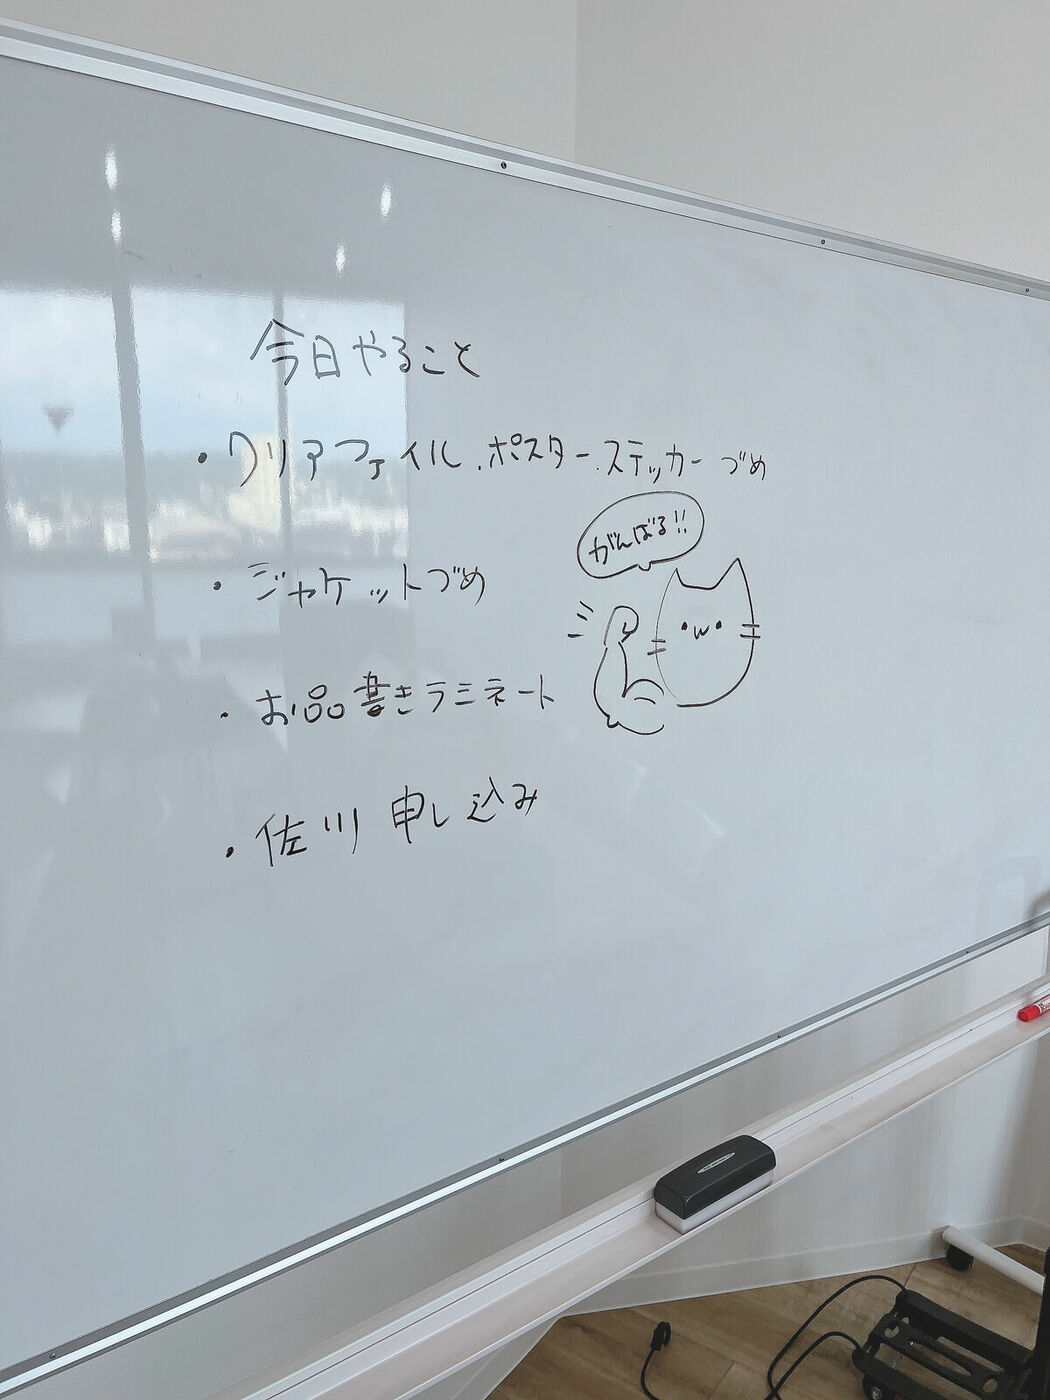 今日やること
・クリアファイル.ポスター.ステッカーづめ
がんばる!!
・ジャケットづめ
・お品書きラミネート
・佐川 申し込み